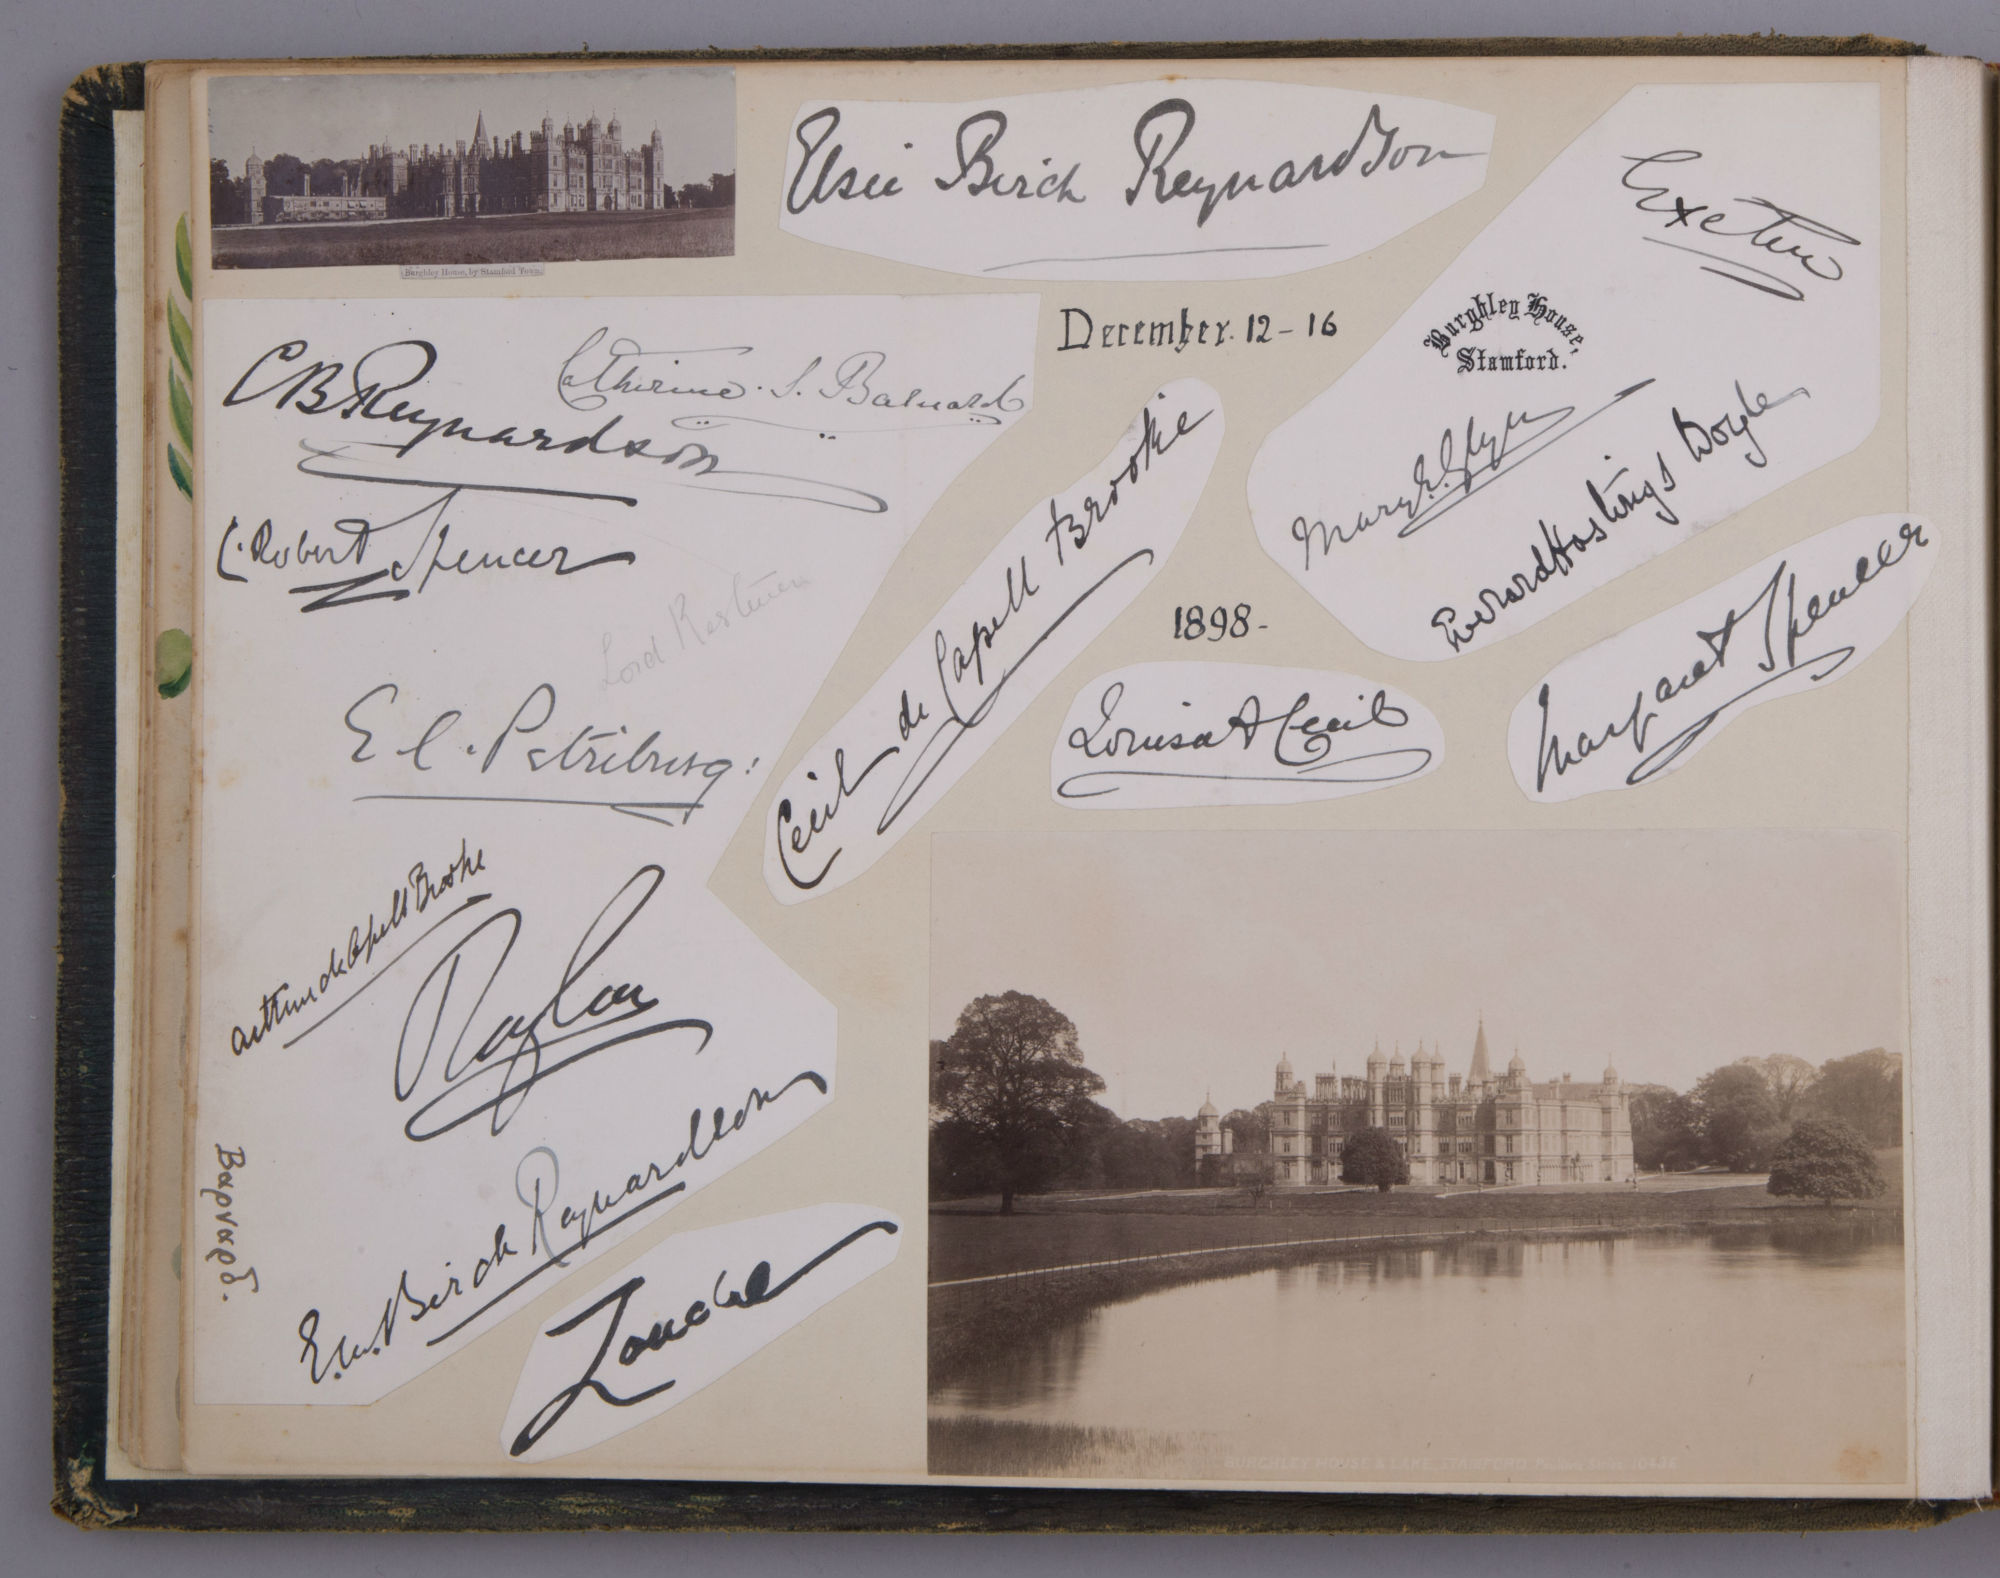 Burghley House, by Stamford Town.
Elsie Birch Reynardson
Exeter
Burghley House,
Stamford.
December. 12 - 16
CB Reynardson
Catherine. S. Barnard
C. Robert Spencer
Mary E. Glyn
Everard Hastings Doyle
Cecil de Capell Brooke
1898-
Margaret Spencer
Lord
E C. Petriburg:
Louisa A Cecil
Arthur de Capell Brooke
Raglan
Βαρναρδ.
E.M. Birch Reynardson
Zouche
BURGHLEY HOUSE & LAKE, STAMFORD. Poulton Series 10436